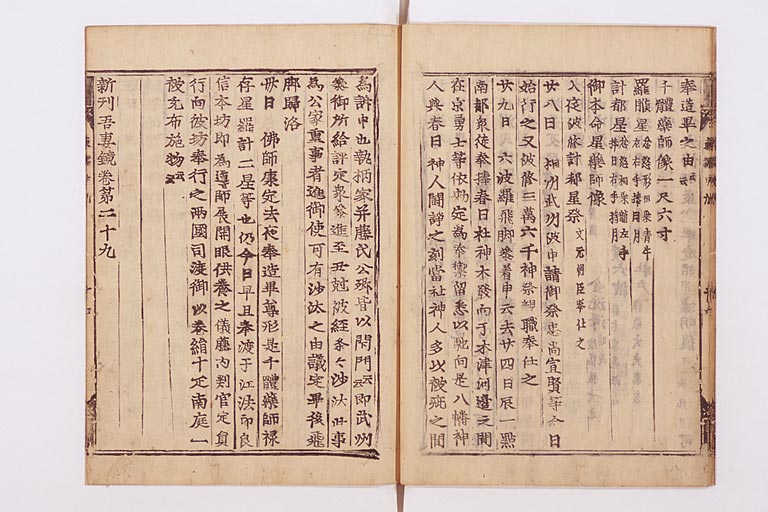 奉造畢之由云云
千體藥師像一尺六寸
羅睺星忿怒形相乘青牛左右手捧日月
計都星忿怒相乘龍左手捧日右手持月
御本命星藥師像
入夜被修計都星祭文元朝臣奉仕之
廿八日 相州武州被申請御祭忠尚宣賢等今日
始行之又被修三萬六千神祭親職奉仕之
廿九日 六波羅飛脚參着申云去廿四日辰一點
南都衆徒奉捧春日社神木發向于木津河邊之間
在京勇士等依勅定爲奉禦留悉以馳向是八幡神
人與春日神人鬪諍之刻當社神人多以被疵之間
爲訴申也執柄家并藤氏公卿皆以閇門云云即武州
參御所給評定衆等參進至丑尅被經條々沙汰此事
爲公家重事者進御使可有沙汰之由議定畢後飛
脚歸洛
卅日 佛師康定去夜奉造畢尊形是千體藥師禄
存星羅計二星等也仍今日早旦奉渡于江法印良
信本坊即爲導師展開眼供養之儀藤内判官定員
行向彼坊奉行之兩國司渡御以卷絹十疋南庭一
被充布施物云云
新刊吾妻鏡卷第二十九